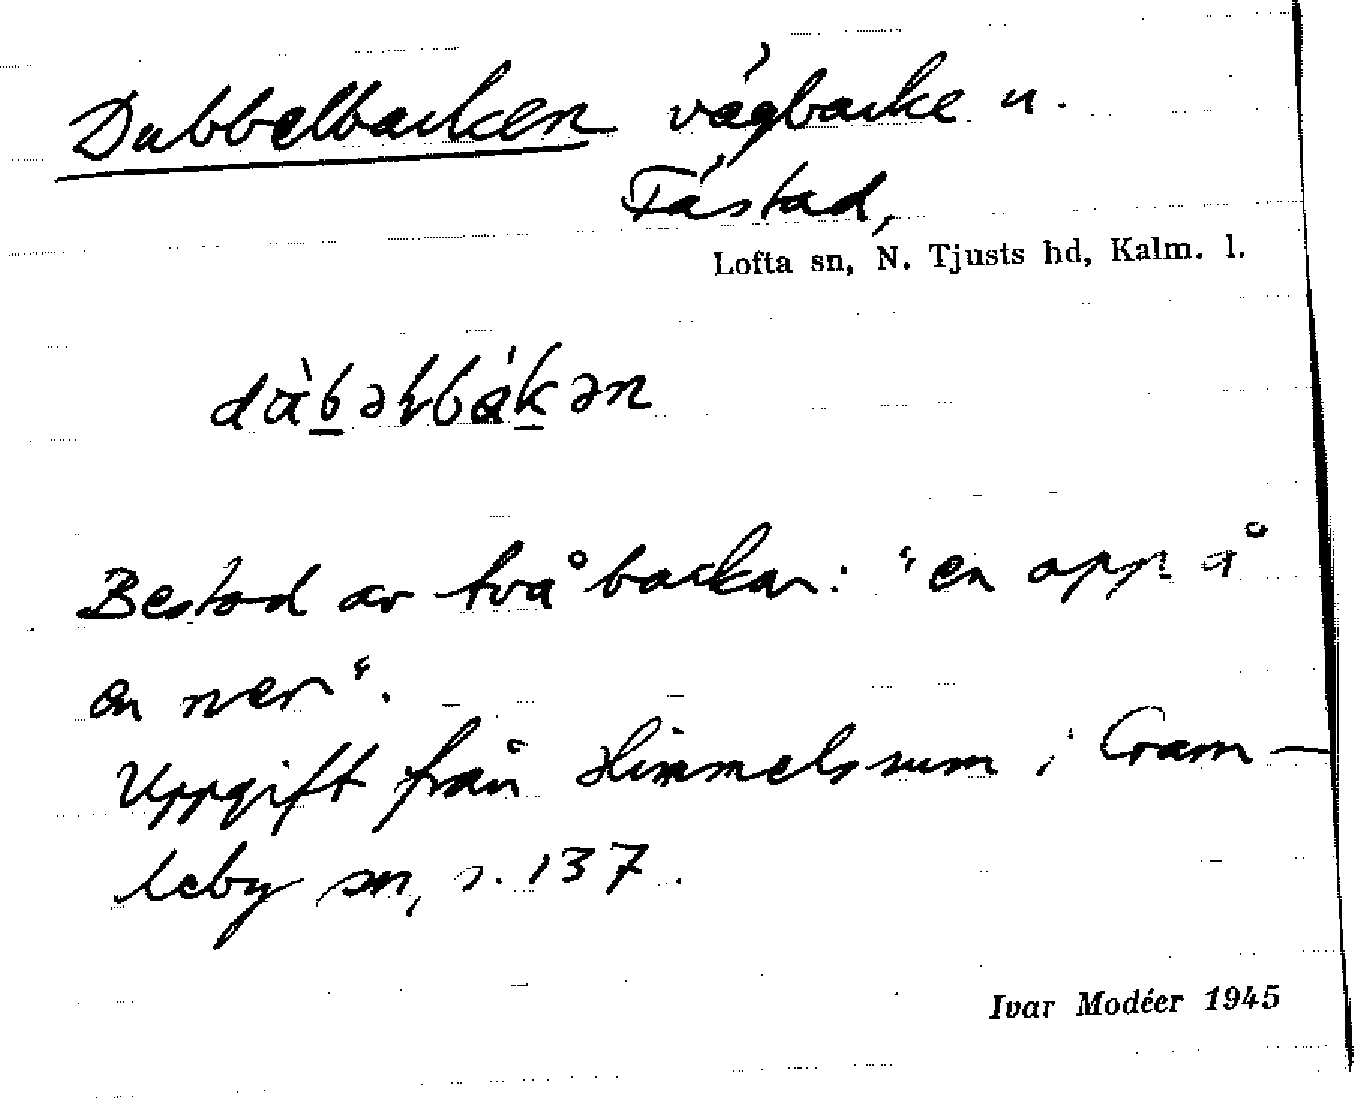 Dubbelbacken vägbacke u.
Fästad,
Lofta sn, N. Tjusts hd, Kalm. l.
Bestod av två backar: "en opp å
en ner".
Uppgift från Himmelsrum i Gam-
leby sn, s. 137.
Ivar Modéer 1945